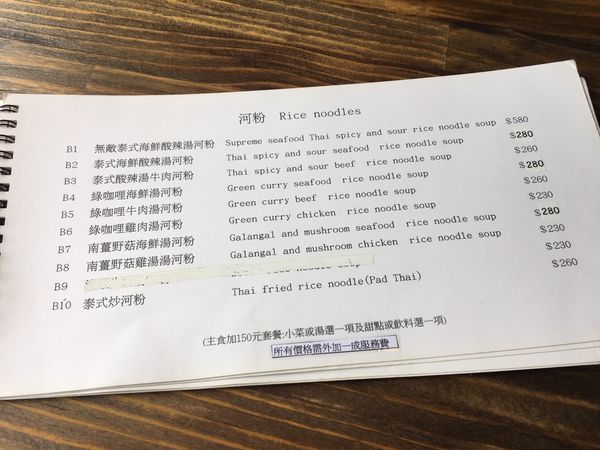 河粉 Rice noodles
B1 無敵泰式海鮮酸辣湯河粉 Supreme seafood Thai spicy and sour rice noodle soup $580
B2 泰式海鮮酸辣湯河粉 Thai spicy and sour seafood rice noodle soup $280
B3 泰式酸辣湯牛肉河粉 Thai spicy and sour beef rice noodle soup $260
B4 綠咖哩海鮮湯河粉 Green curry seafood rice noodle soup $280
B5 綠咖哩牛肉湯河粉 Green curry beef rice noodle soup $260
B6 綠咖哩雞肉湯河粉 Green curry chicken rice noodle soup $230
B7 南薑野菇海鮮湯河粉 Galangal and mushroom seafood rice noodle soup $280
B8 南薑野菇雞湯湯河粉 Galangal and mushroom chicken rice noodle soup $230
B9 rice noodle soup $230
B10 泰式炒河粉 Thai fried rice noodle(Pad Thai) $260
(主食加150元套餐:小菜或湯選一項及甜點或飲料選一項)
所有價格需外加一成服務費